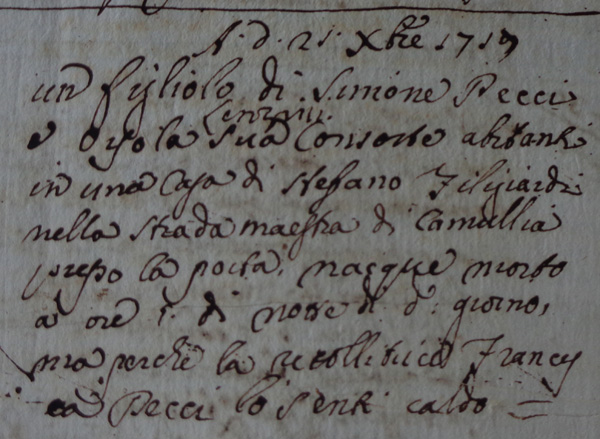 A. d. 21. Xbre 1717
un figliolo di Simone Pecci
e Orsola sua Consorte abitanti
in una Casa di Stefano Filigiardi
nella strada maestra di Camullia
presso la porta, nacque morto
a ore 1. di notte di d. giorno,
ma perchè la recollitrice Frances
ca Pecci lo sentì caldo =